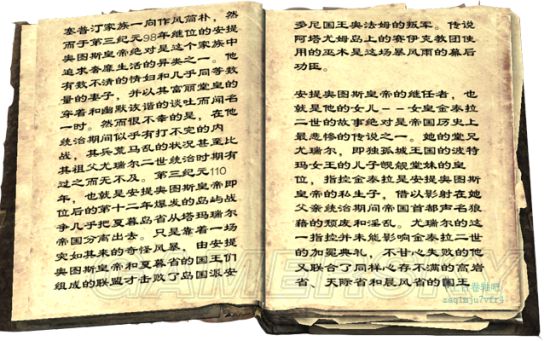 塞普汀家族一向作风简朴，然
而于第三纪元98年继位的安提
奥图斯皇帝绝对是这个家族中
追求奢靡生活的异类之一。他
有数不清的情妇和几乎同等数
量的妻子，并以其富丽堂皇的
穿着和幽默诙谐的谈吐而闻名
一时。然而很不幸的是，在他
统治期间似乎有打不完的内
战，其兵荒马乱的状况甚至比
其祖父尤瑞尔二世统治时期有
过之而无不及。第三纪元110
年，也就是安提奥图斯皇帝即
位后的第十二年爆发的岛屿战
争几乎把夏暮岛省从塔玛瑞尔
帝国分离出去。只是靠着一场
突如其来的奇怪风暴，由安提
奥图斯皇帝和夏暮省的国王们
组成的联盟才击败了岛国派安
多尼国王奥法姆的叛军。传说
阿塔尤姆岛上的赛伊克教团使
用的巫术是这场暴风雨的幕后
功臣。
安提奥图斯皇帝的继任者，也
就是他的女儿--女皇金泰拉
二世的故事绝对是帝国历史上
最悲惨的传说之一。她的堂兄
尤瑞尔，即独孤城王国的波特
玛女王的儿子觊觎堂妹的皇
位，指控金泰拉是安提奥图斯
皇帝的私生子，借以影射在她
父亲统治期间帝国首都声名狼
藉的颓废和淫乱。尤瑞尔的这
一指控并未能影响金泰拉二世
的加冕典礼，不甘心失败的他
又联合了同样心存不满的高岩
省、天际省和晨风省的国王
GAMERSKY